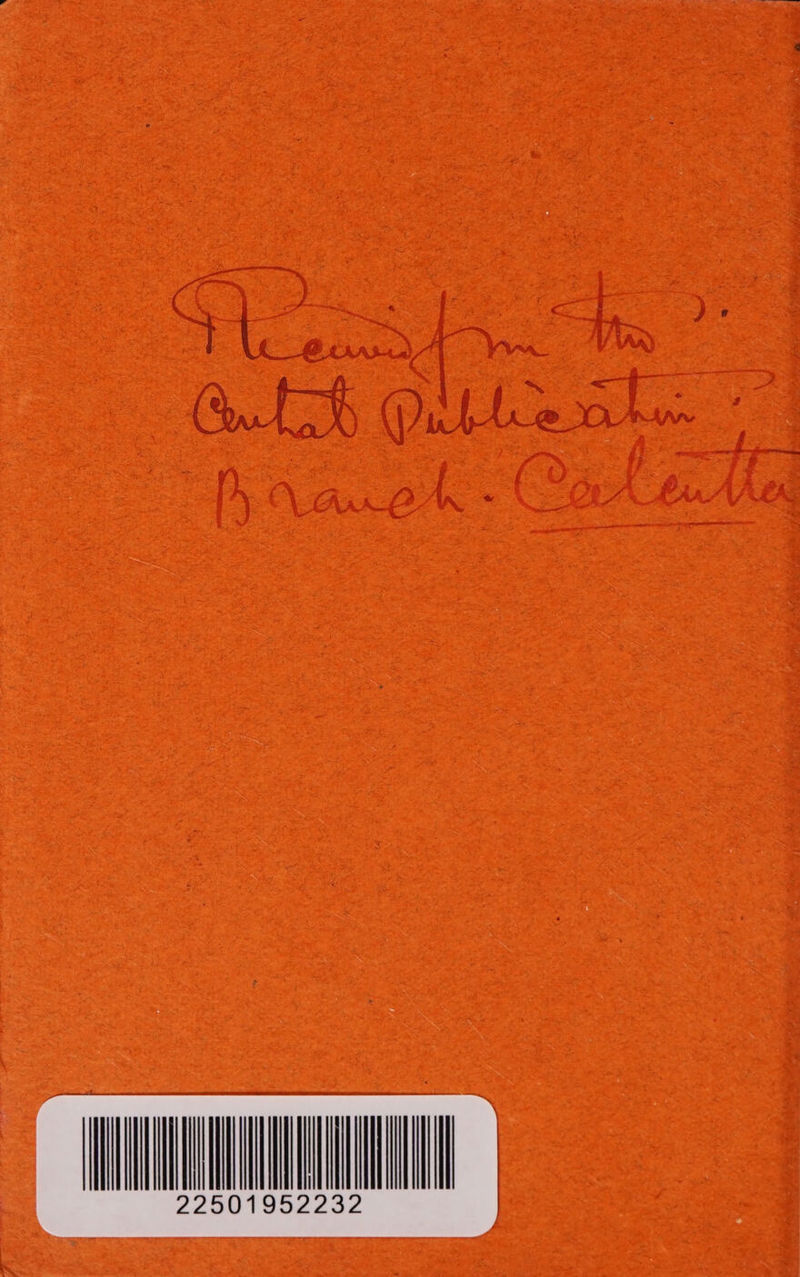 Received from the
Central Publication
Branch. Calcutta
22501952232